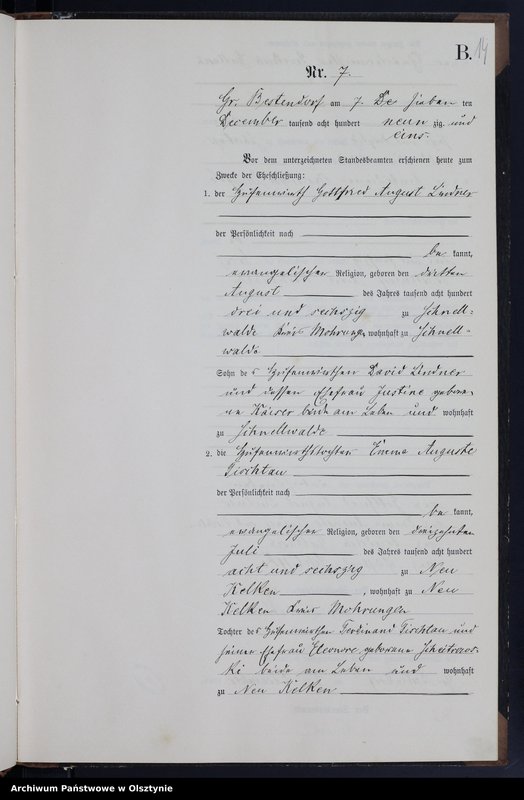 B. 14
Nr. 7.
Gr. Bestendorf am 7. De sieben ten
Dezember tausend acht hundert neun zig und
eins.
Vor dem unterzeichneten Standesbeamten erschienen heute zum
Zwecke der Eheschließung:
1. der Hufenwirth Gottfried August Lindner
der Persönlichkeit nach
be kannt,
evangelischer Religion, geboren den dritten
August des Jahres tausend acht hundert
drei und sechszig zu Schnell-
walde Kreis Mohrungen, wohnhaft zu Schnell-
walde
Sohn des Hufenwirthen David Lindner
und dessen Ehefrau Justine gebore-
ne Kaiser beide am Leben und wohnhaft
zu Schnellwalde
2. die Hufenwirthstochter Emma Auguste
Tischtau
der Persönlichkeit nach
be kannt,
evangelischer Religion, geboren den dreizehnten
Juli des Jahres tausend acht hundert
acht und sechszig zu Neu
Kelken, wohnhaft zu Neu
Kelken Kreis Mohrungen
Tochter des Hufenwirthen Ferdinand Tischtau und
seiner Ehefrau Eleonore geborene
ki beide am Leben und wohnhaft
zu Neu Kelken
Archiwum Państwowe w Olsztynie